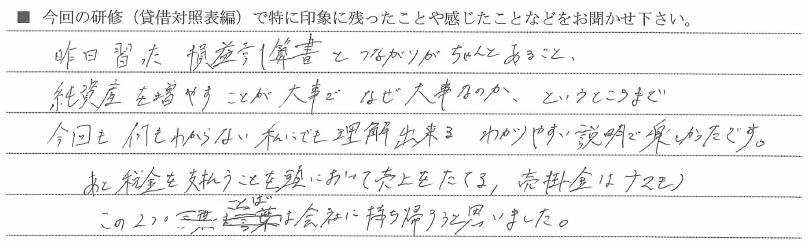 ■ 今回の研修（貸借対照表編）で特に印象に残ったことや感じたことなどをお聞かせ下さい。
昨日習った 損益計算書とつながりがちゃんとあること、
純資産を増やすことが大事で なぜ大事なのか、というところまで
今回も何もわからない私にでも理解出来る わかりやすい説明で楽しかったです。
あと税金を支払うことを頭において売上をたてる, 売掛金はナマモノ
この2つの ことば は会社に持ち帰ろうと思いました。